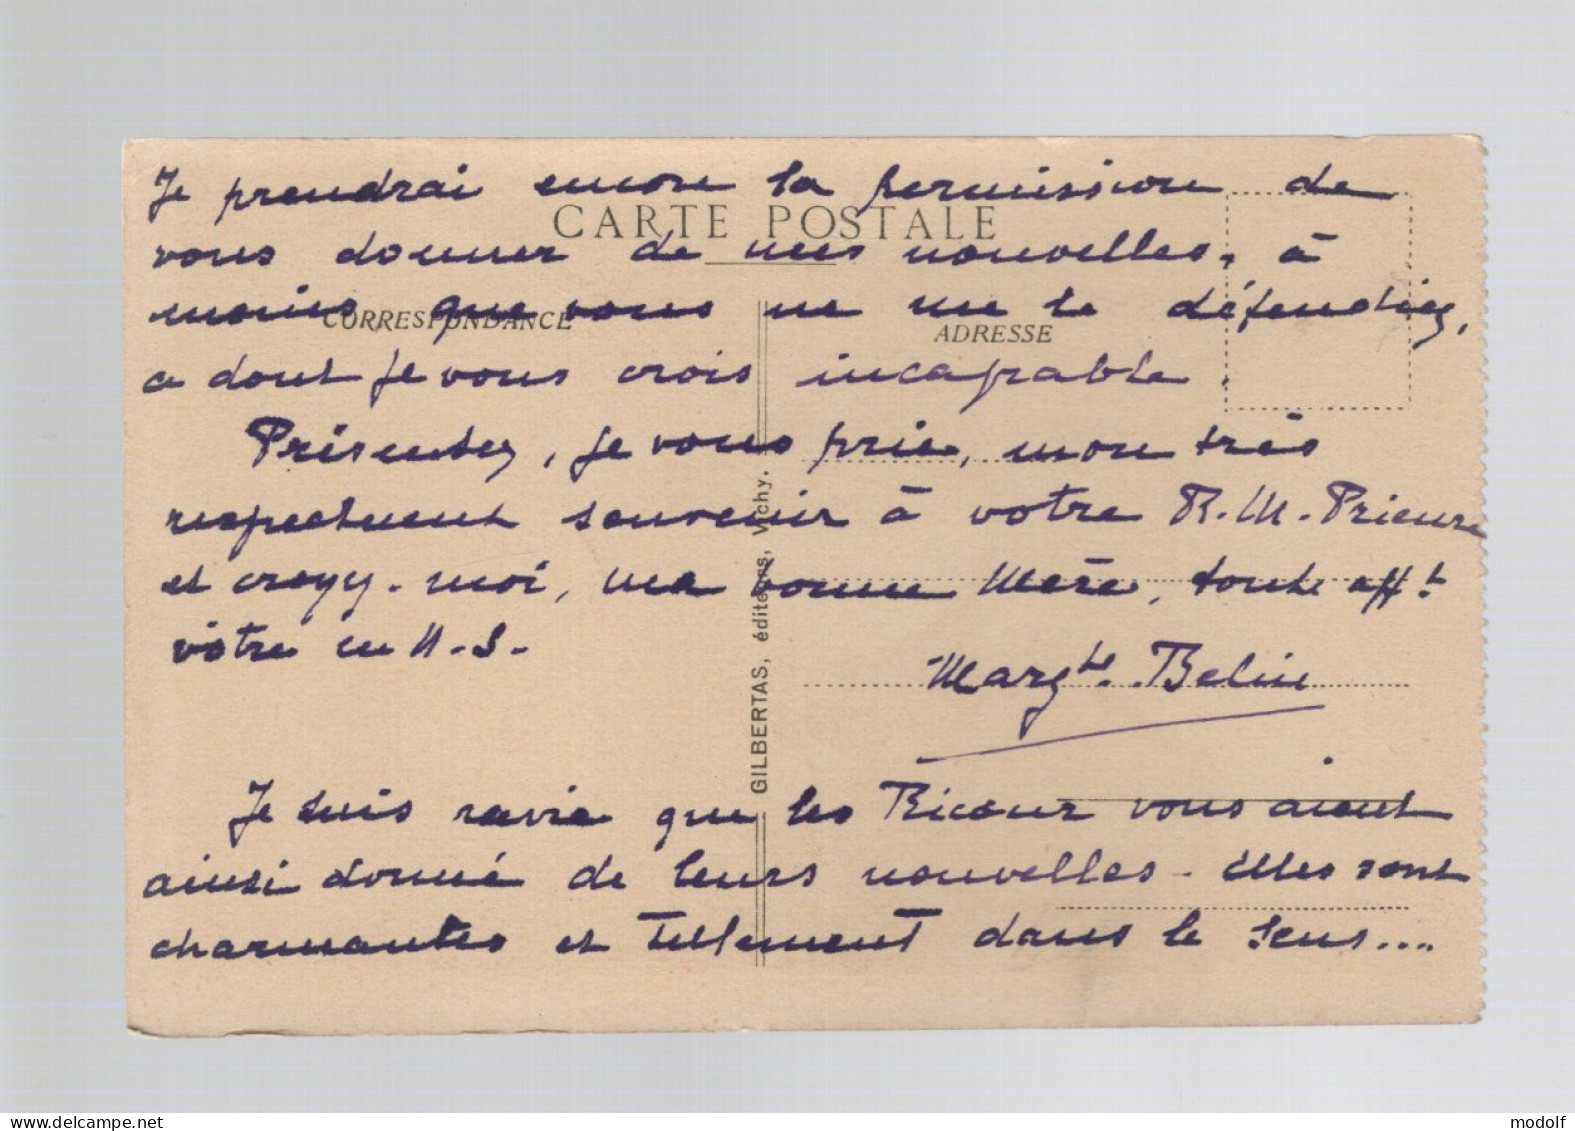 Je prendrai encore la permission de
CARTE POSTALE
vous donner de mes nouvelles, à
moins que vous ne me le défendiez,
CORRESPONDANCE
ADRESSE
ce dont je vous crois incapable.
Présentez, je vous prie, mon très
respectueux souvenir à votre R. M. Prieure
et croyez-moi, ma bonne Mère, toute afft
vôtre en N. S.
Margte. Belin
GILBERTAS, éditeurs, Vichy.
Je suis ravie que les Ricœur vous aient
ainsi donné de leurs nouvelles - Elles sont
charmantes et tellement dans le sens....
modolf